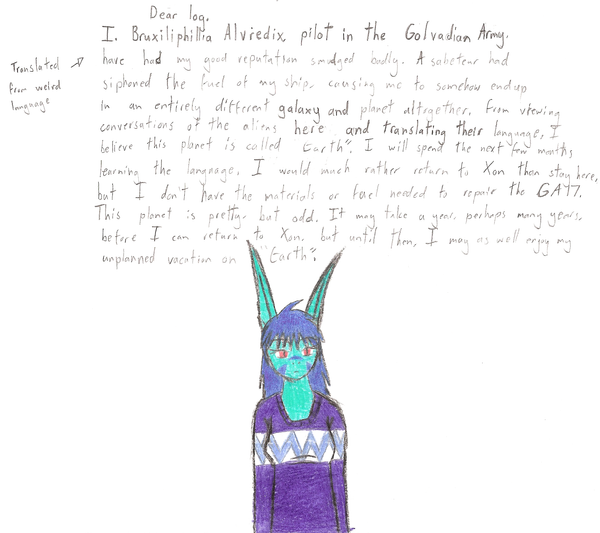 Dear log.
I. Bruxiliphillia Alviedix, pilot in the Golvadian Army.
have had my good reputation smudged badly. A sabeteur had
siphoned the fuel of my ship, causing me to somehow end up
in an entirely different galaxy and planet altogether. From viewing
conversations of the aliens here and translating their language, I
believe this planet is called "Earth". I will spend the next few months
learning the language. I would much rather return to Xon then stay here,
but I don't have the materials or fuel needed to repair the GA77.
This planet is pretty, but odd. It may take a year, perhaps many years,
before I can return to Xon, but until then, I may as well enjoy my
unplanned vacation on "Earth".
Translated
from weird
language